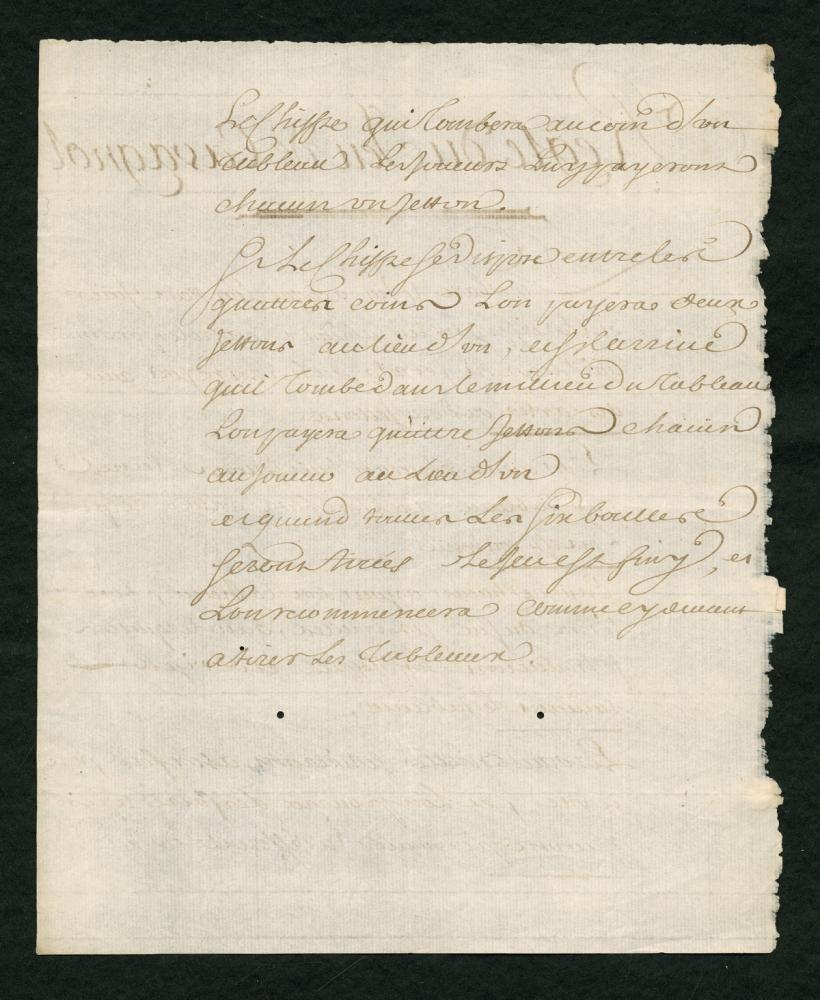 Le Chiffre qui Tombera au coin d'un
Tableau Les joueurs Luy payeront
chacun un Jetton.
Si Le Chiffre se dispose entre les
quattres coins Lon payera deux
jettons au lieu d'un, et sil arrive
quil Tombe dans le milieu du Tableau
Lon payera quattre Jettons chacun
au joueur au Lieu d'un
et quand toutes Les six boulles
seront tirées Le jeu est finy, et
Lon recommencera comme cy devant
a tirer Les Tableaux